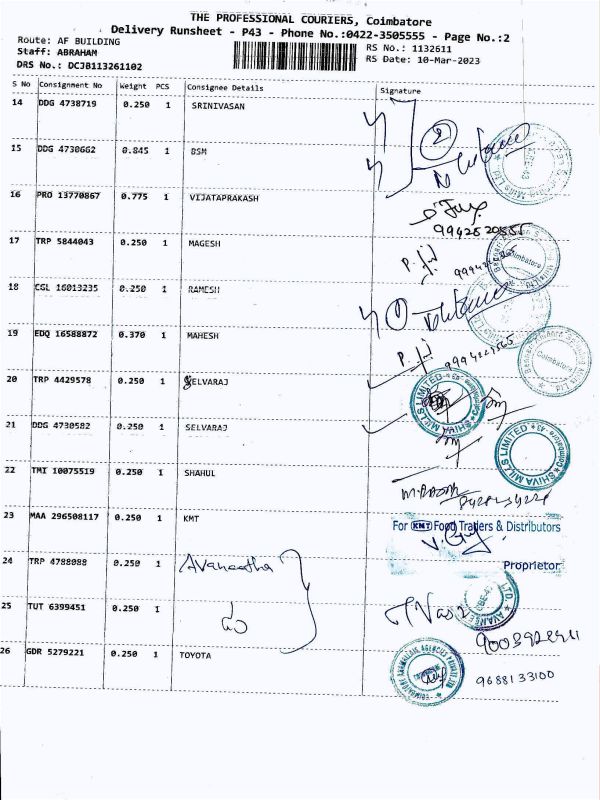 THE PROFESSIONAL COURIERS, Coimbatore
Delivery Runsheet - P43 - Phone No.:0422-3505555 - Page No.:2
Route: AF BUILDING
Staff: ABRAHAM
DRS No.: DCJB113261102
RS No.: 1132611
RS Date: 10-Mar-2023
S No Consignment No Weight PCS Consignee Details Signature
14 DDG 4738719 0.250 1 SRINIVASAN
15 DDG 4730662 0.845 1 BSM
16 PRO 13770867 0.775 1 VIJATAPRAKASH
17 TRP 5844043 0.250 1 MAGESH
18 CGL 16013235 0.250 1 RAMESH
19 EDQ 16588872 0.370 1 MAHESH
20 TRP 4429578 0.250 1 SELVARAJ
21 DDG 4730582 0.250 1 SELVARAJ
SHIVA MILLS LIMITED
Coimbatore - 43
22 TMI 10075519 0.250 1 SHAHUL
23 MAA 296508117 0.250 1 KMT
For KMT Food Traders & Distributors
Proprietor
24 TRP 4788088 0.250 1 Avaneetha
25 TUT 6399451 0.250 1
26 GDR 5279221 0.250 1 TOYOTA
9688133100